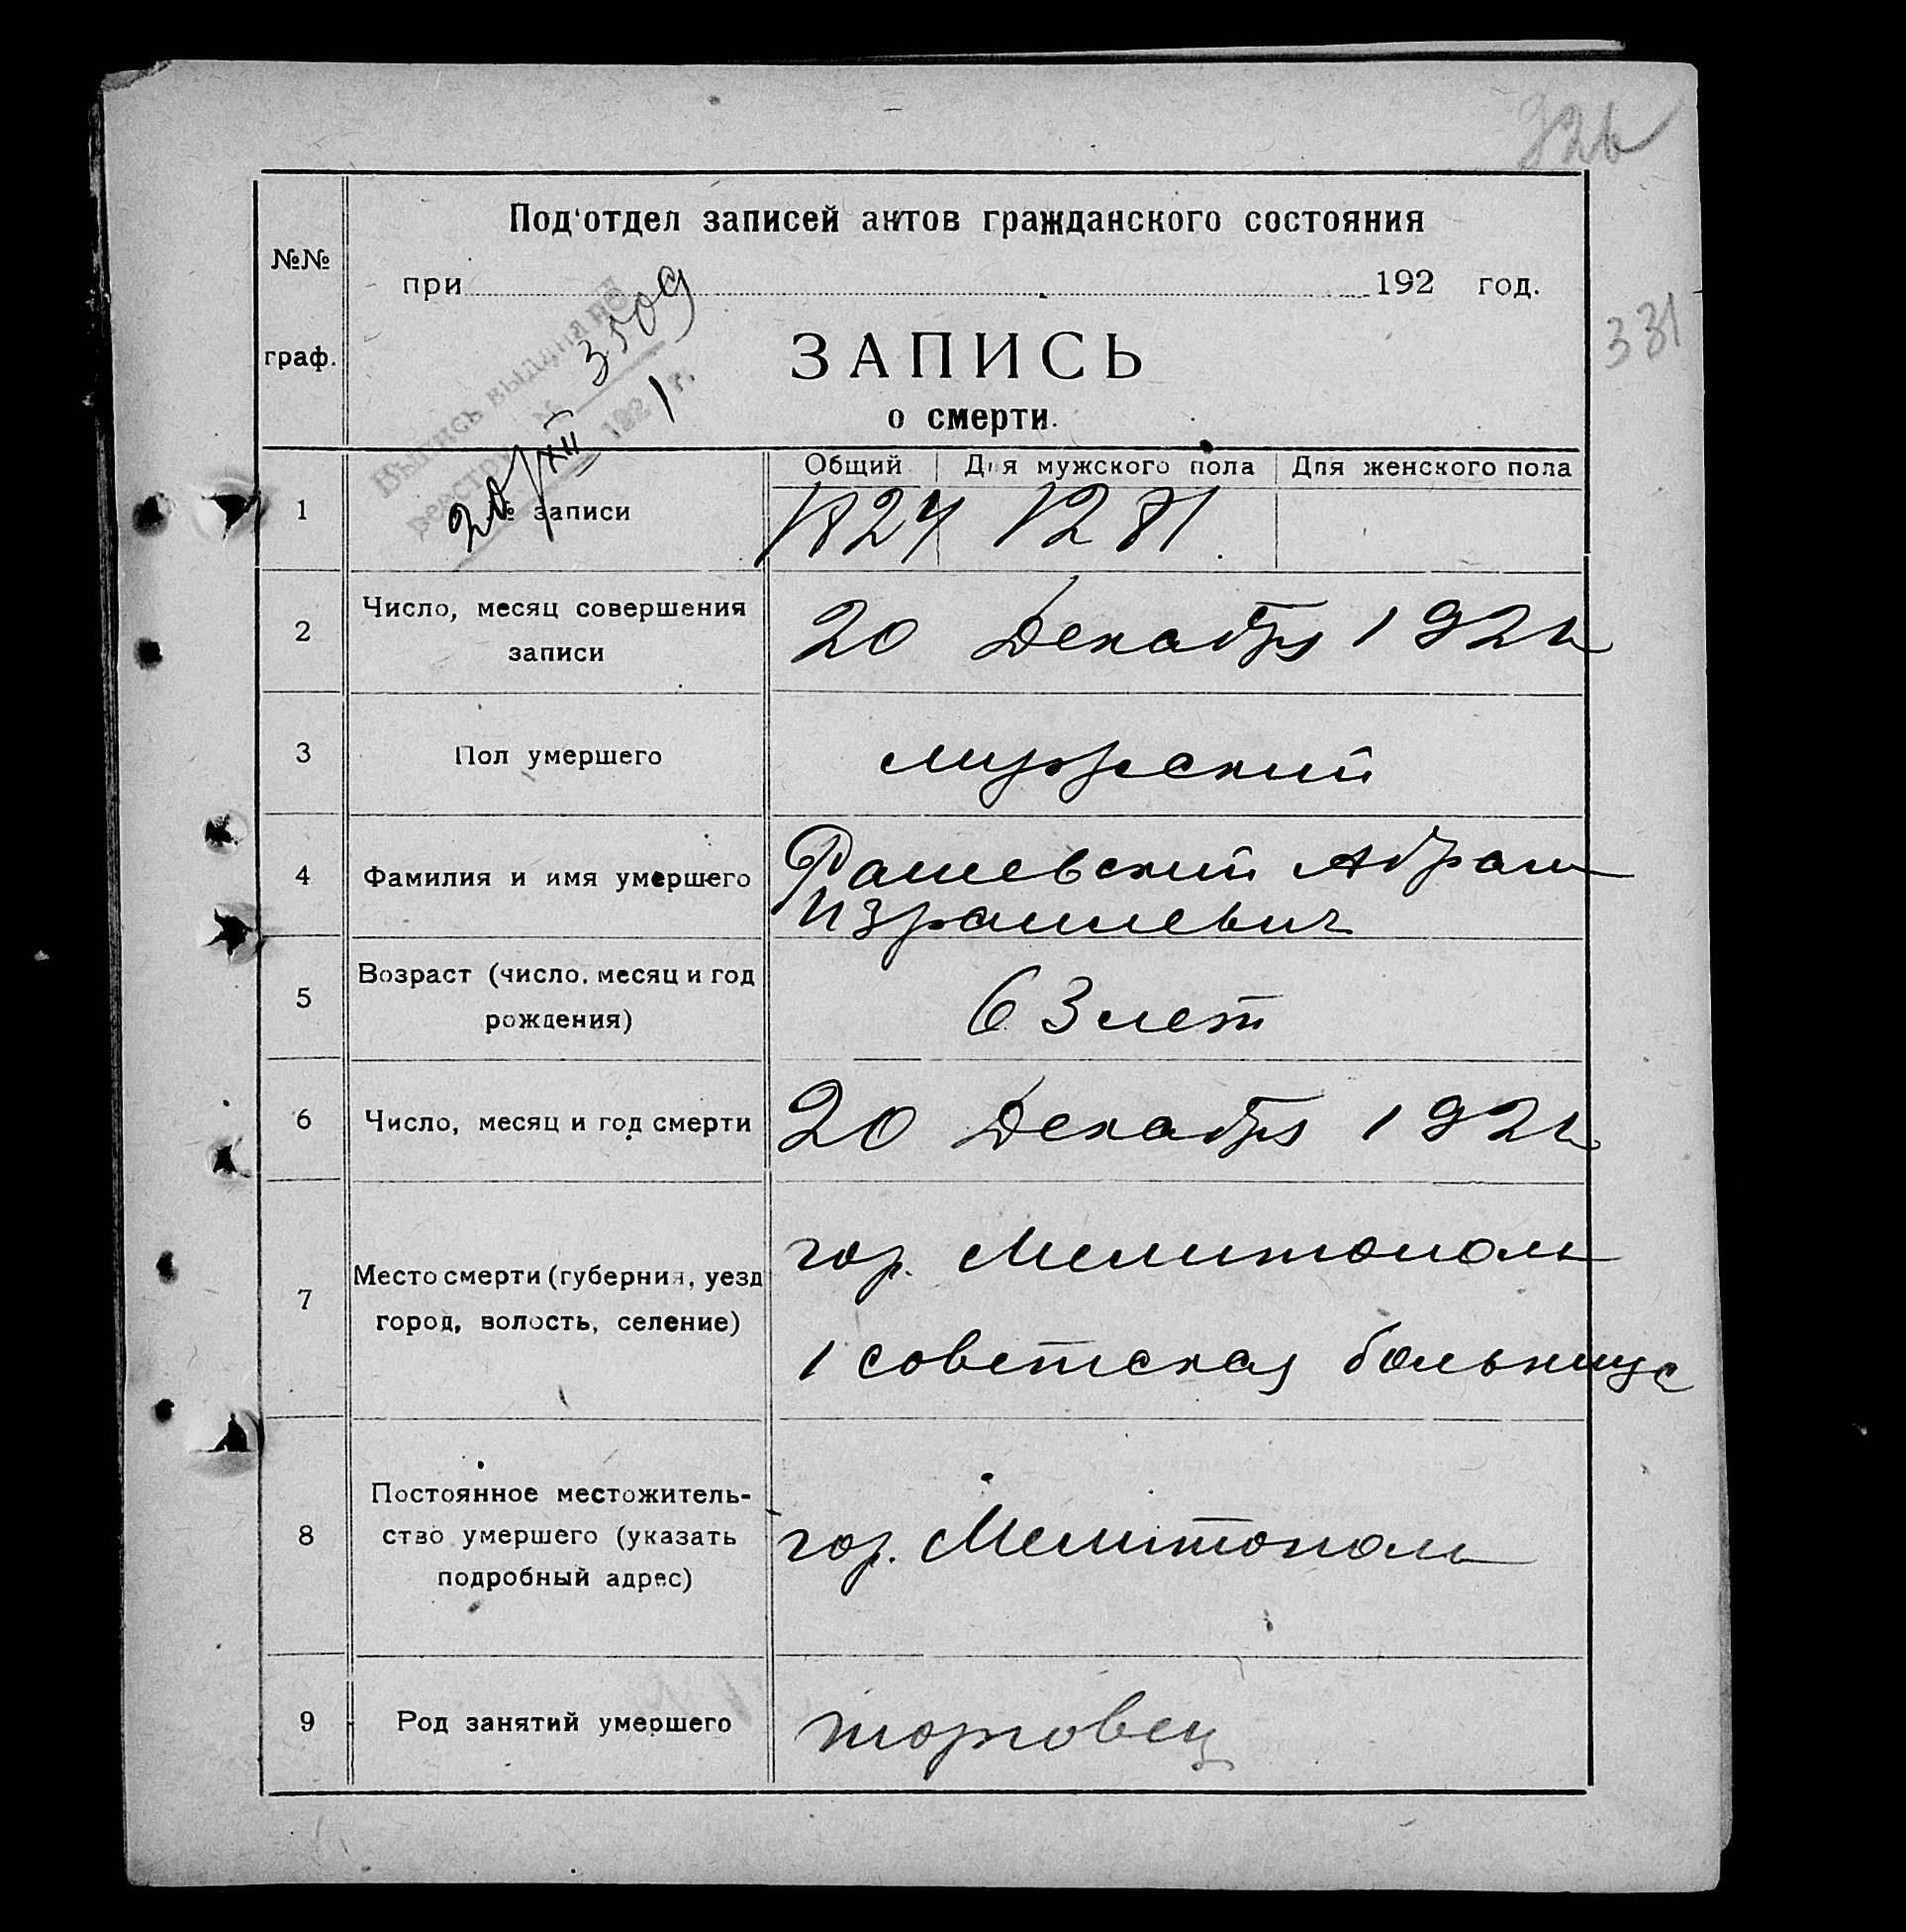 326
331
№№
граф.
Под'отдел записей актов гражданского состояния
при 192 год.
ЗАПИСЬ
о смерти.
Выпись выдана по
реестру № 3509
20/XII 1921 г.
Общий Для мужского пола Для женского пола
1 № записи 1824 1281
2 Число, месяц совершения
записи
20 Декабря 1921
3 Пол умершего мужской
4 Фамилия и имя умершего
Абрам
Израилевич
5 Возраст (число, месяц и год
рождения)
63 лет
6 Число, месяц и год смерти 20 Декабря 1921
7 Место смерти (губерния, уезд
город, волость, селение)
гор. Мелитополь
1 советская больница
8 Постоянное местожитель-
ство умершего (указать
подробный адрес)
гор. Мелитополь
9 Род занятий умершего торговец